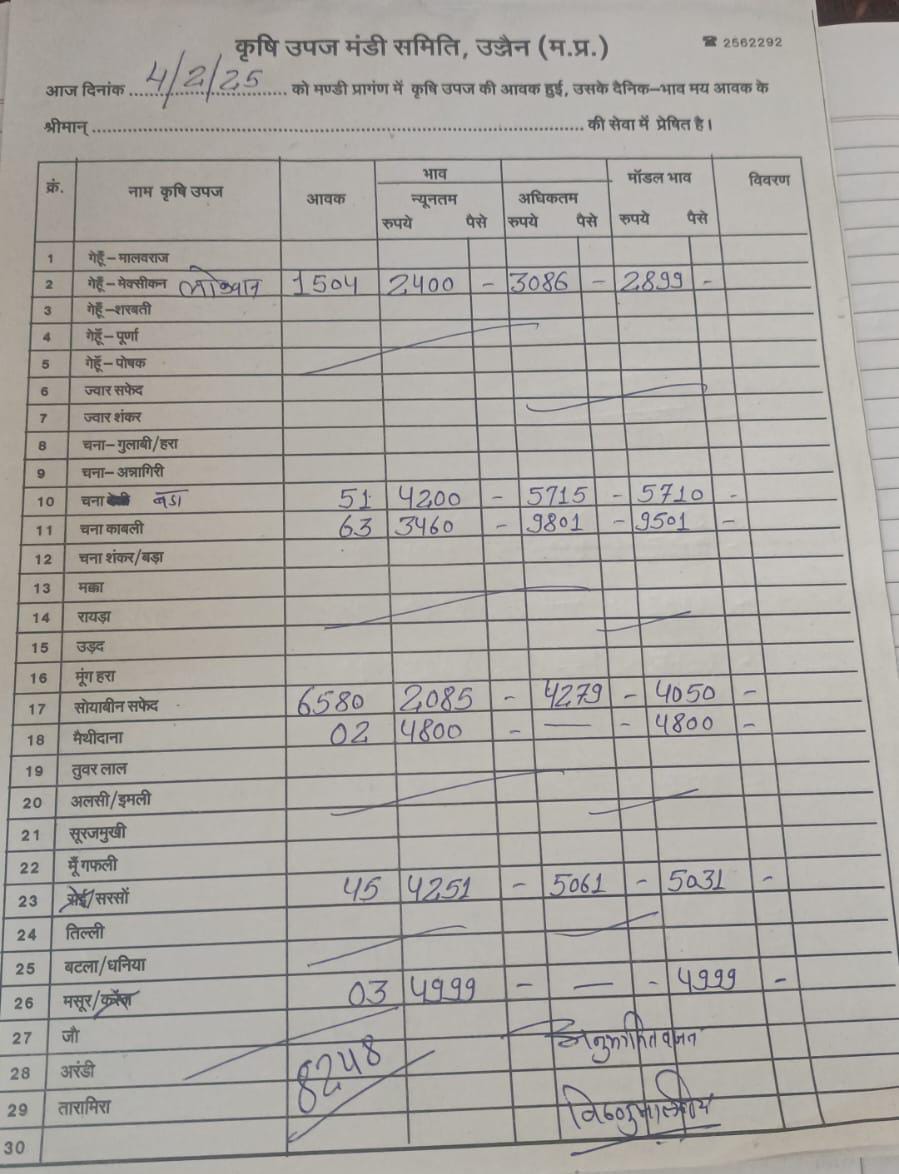 कृषि उपज मंडी समिति, उज्जैन (म.प्र.) ☎ 2562292
आज दिनांक 4/2/25 को मण्डी प्रागंण में कृषि उपज की आवक हुई, उसके दैनिक-भाव मय आवक के
श्रीमान् की सेवा में प्रेषित है।
क्रं. नाम कृषि उपज आवक भाव मॉडल भाव विवरण
न्यूनतम अधिकतम
रुपये पैसे रुपये पैसे रुपये पैसे
1 गेहूँ-मालवराज
2 गेहूँ-मेक्सीकन लोकवान 1504 2400 - 3086 - 2899 -
3 गेहूँ-शरबती
4 गेहूँ-पूर्णा
5 गेहूँ-पोषक
6 ज्वार सफेद
7 ज्वार शंकर
8 चना-गुलाबी/हरा
9 चना-अन्नागिरी
10 चना 51 4200 - 5715 - 5710 -
11 चना काबली 63 3460 - 9801 - 9501 -
12 चना शंकर/बड़ा
13 मक्का
14 रायड़ा
15 उड़द
16 मूंग हरा
17 सोयाबीन सफेद 6580 2085 - 4279 - 4050 -
18 मैथीदाना 02 4800 - — - 4800 -
19 तुवर लाल
20 अलसी/इमली
21 सूरजमुखी
22 मूँगफली
23 /सरसों 45 4251 - 5061 - 5031 -
24 तिल्ली
25 बटला/धनिया
26 मसूर/ 03 4999 - — - 4999 -
27 जौ
28 अरंडी
29 तारामिरा
30
8248
अनुमानित वजन